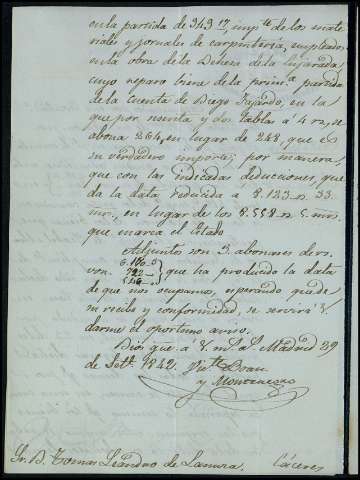 en la partida de 343 17, imp.te de los mate-
riales y jornales de carpintería, empleados
en la obra de la Dehesa de la Lujarada
cuyo reparo biene de la prim.a partida
de la cuenta de Diego Fajardo, en la
que por noventa y dos tablas á 4 rs, se
abona 264, en lugar de 248, que es
su verdadero importe; por manera,
que con las indicadas deducciones, que-
da la data reducida á 8.123 rs 33
mrs, en lugar de los 8.558 rs 5 mrs
que marca el Estado
Adjuntos son 3 abonares de rs
von. 6.100
722
que ha producido la data
de que nos ocupamos, esperando que de
su recibo y conformidad, se servirá V.
darme el oportuno aviso.
Dios gue. á V. m.s a.s Madrid 29
de Set.e 1842.
y Montenegro
Sr. D. Tomas Leandro de Lamura. Cáceres